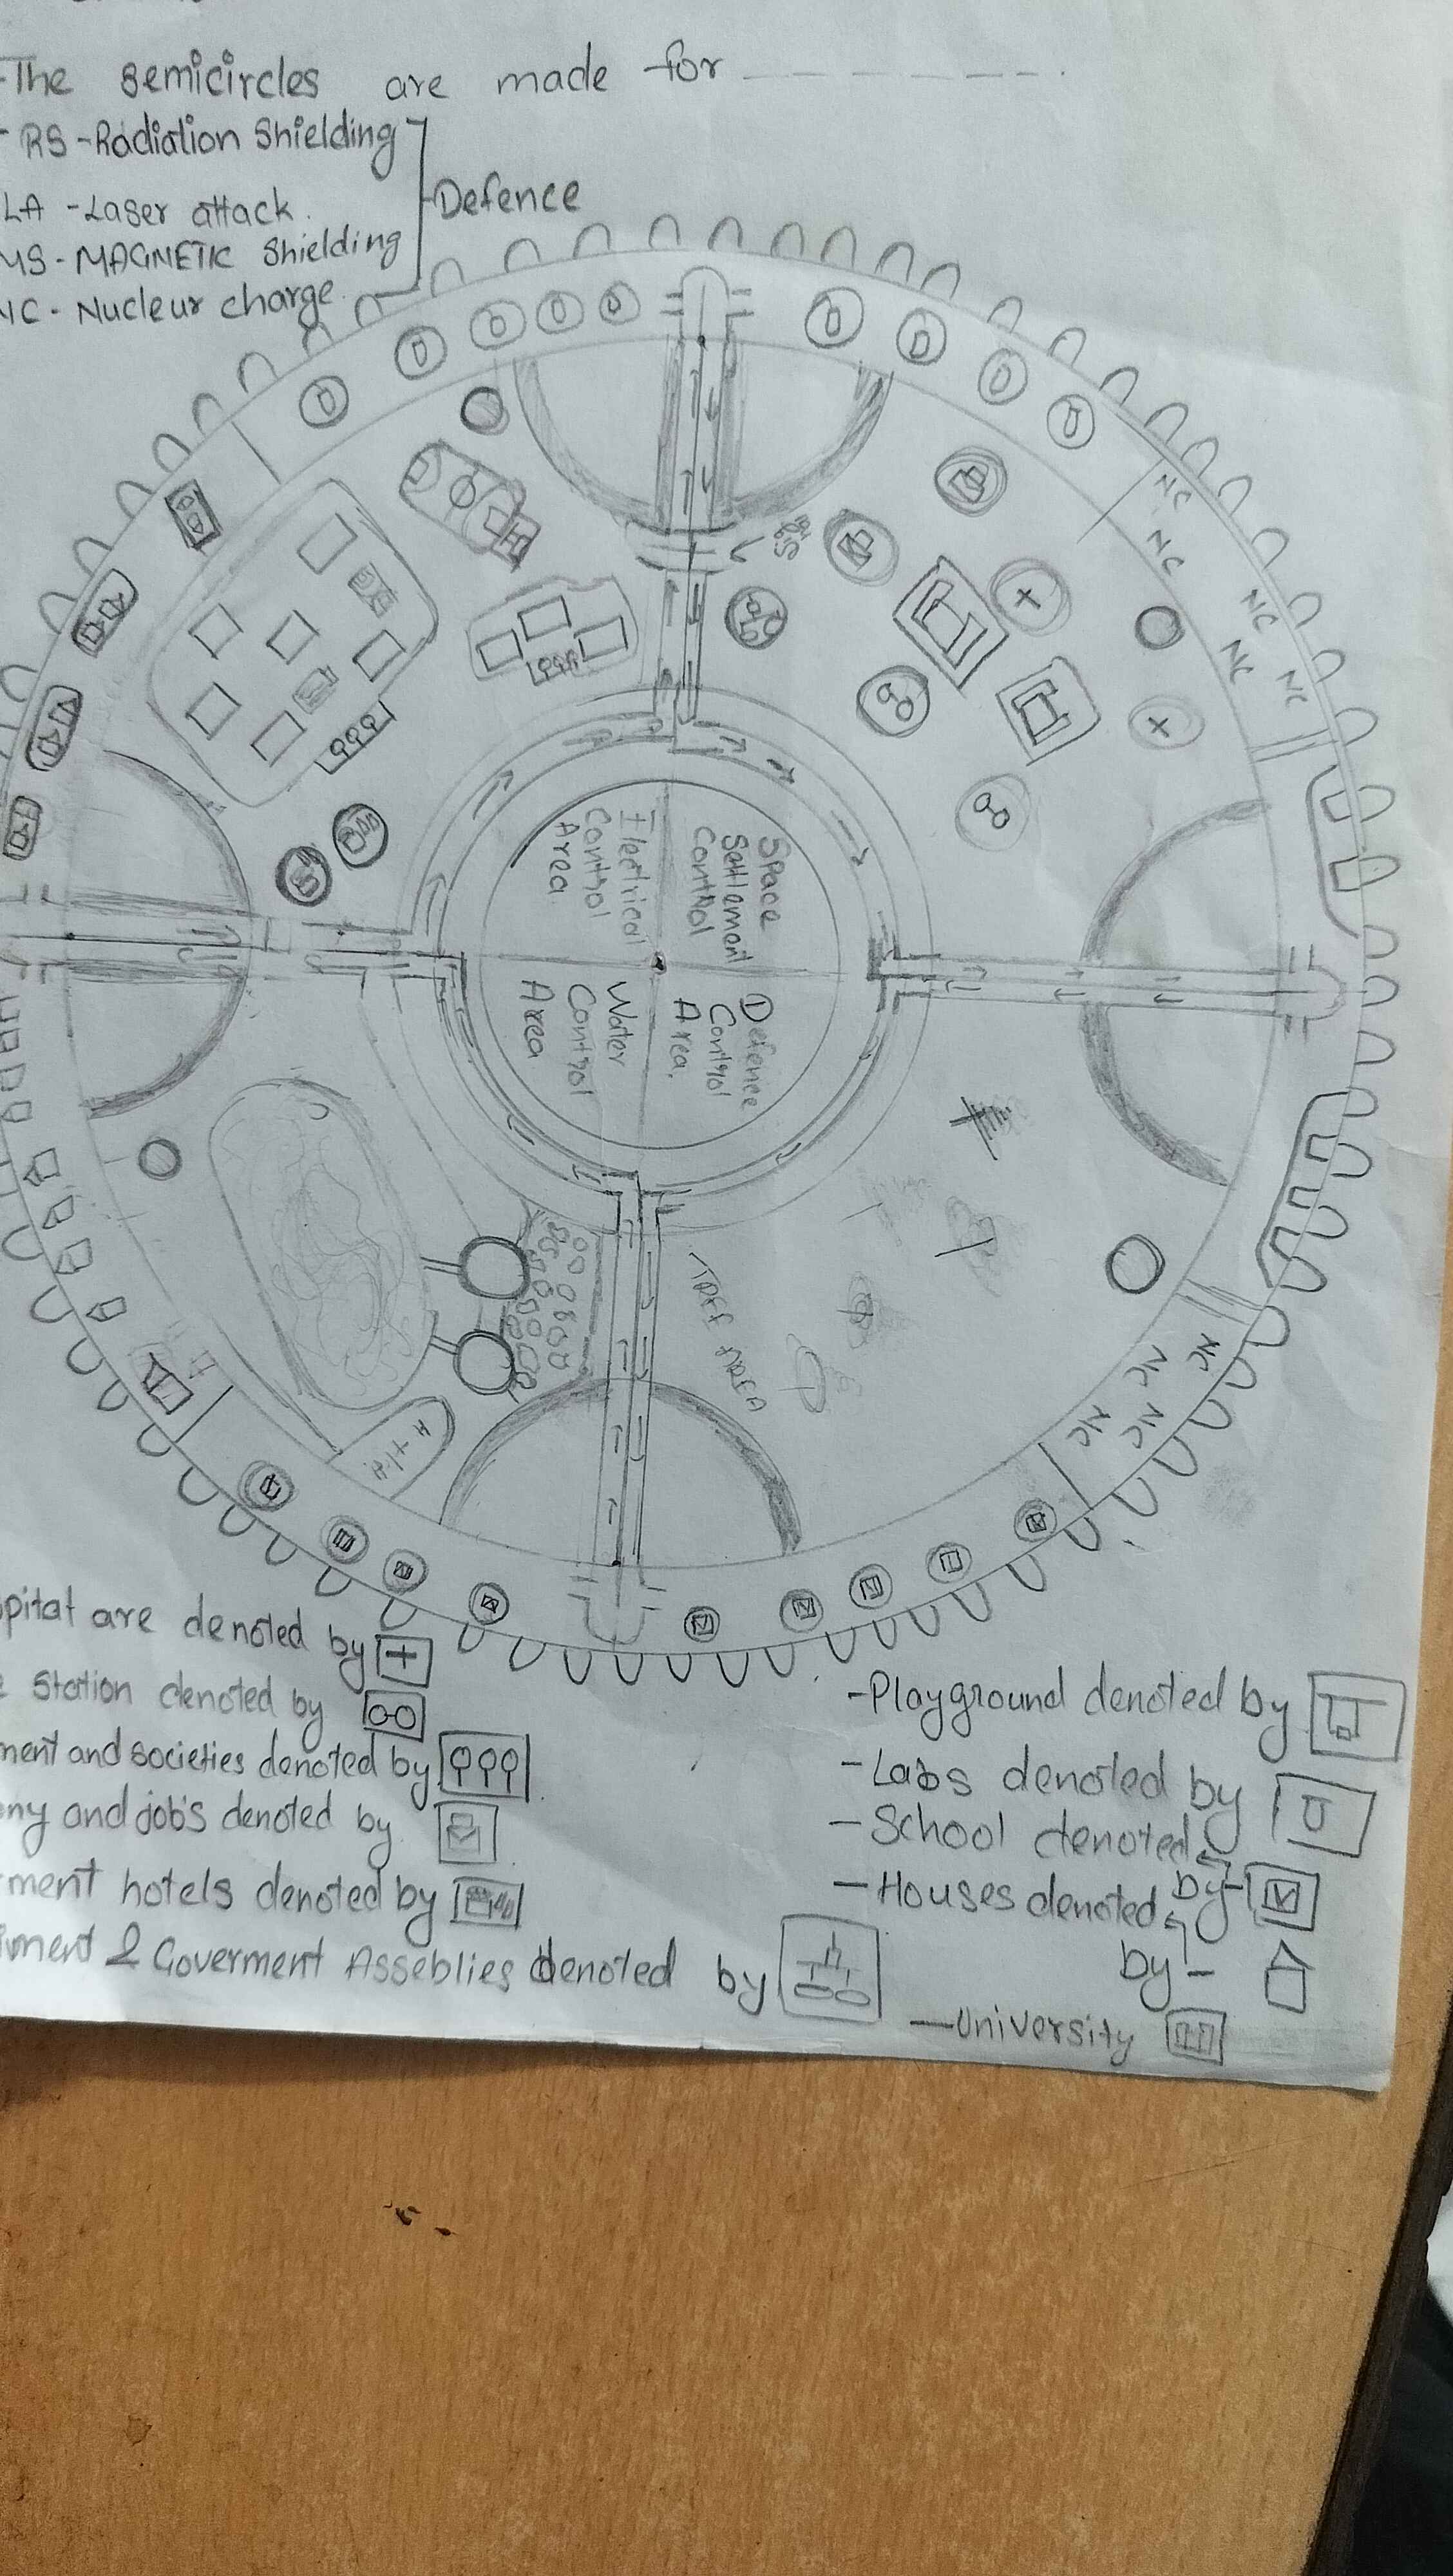 The semicircles are made for
- RS - Radiation Shielding
LA - Laser attack.
MS - MAGNETIC Shielding
NC - Nucleur charge.
Defence
D D D D D D D D D
NC
NC
NC
NC
NC
Space
Settlement
Control
Electrical
Control
Area.
Defence
Control
Area.
Water
Control
Area
TREE AREA
NC
NC
NC
NC
NC
pital are denoted by +
Station denoted by
ment and societies denoted by
ny and job's denoted by
ment hotels denoted by
ment & Goverment Asseblies denoted by
- Playground denoted by
- Labs denoted by
- School denoted by -
- Houses denoted by -
- University